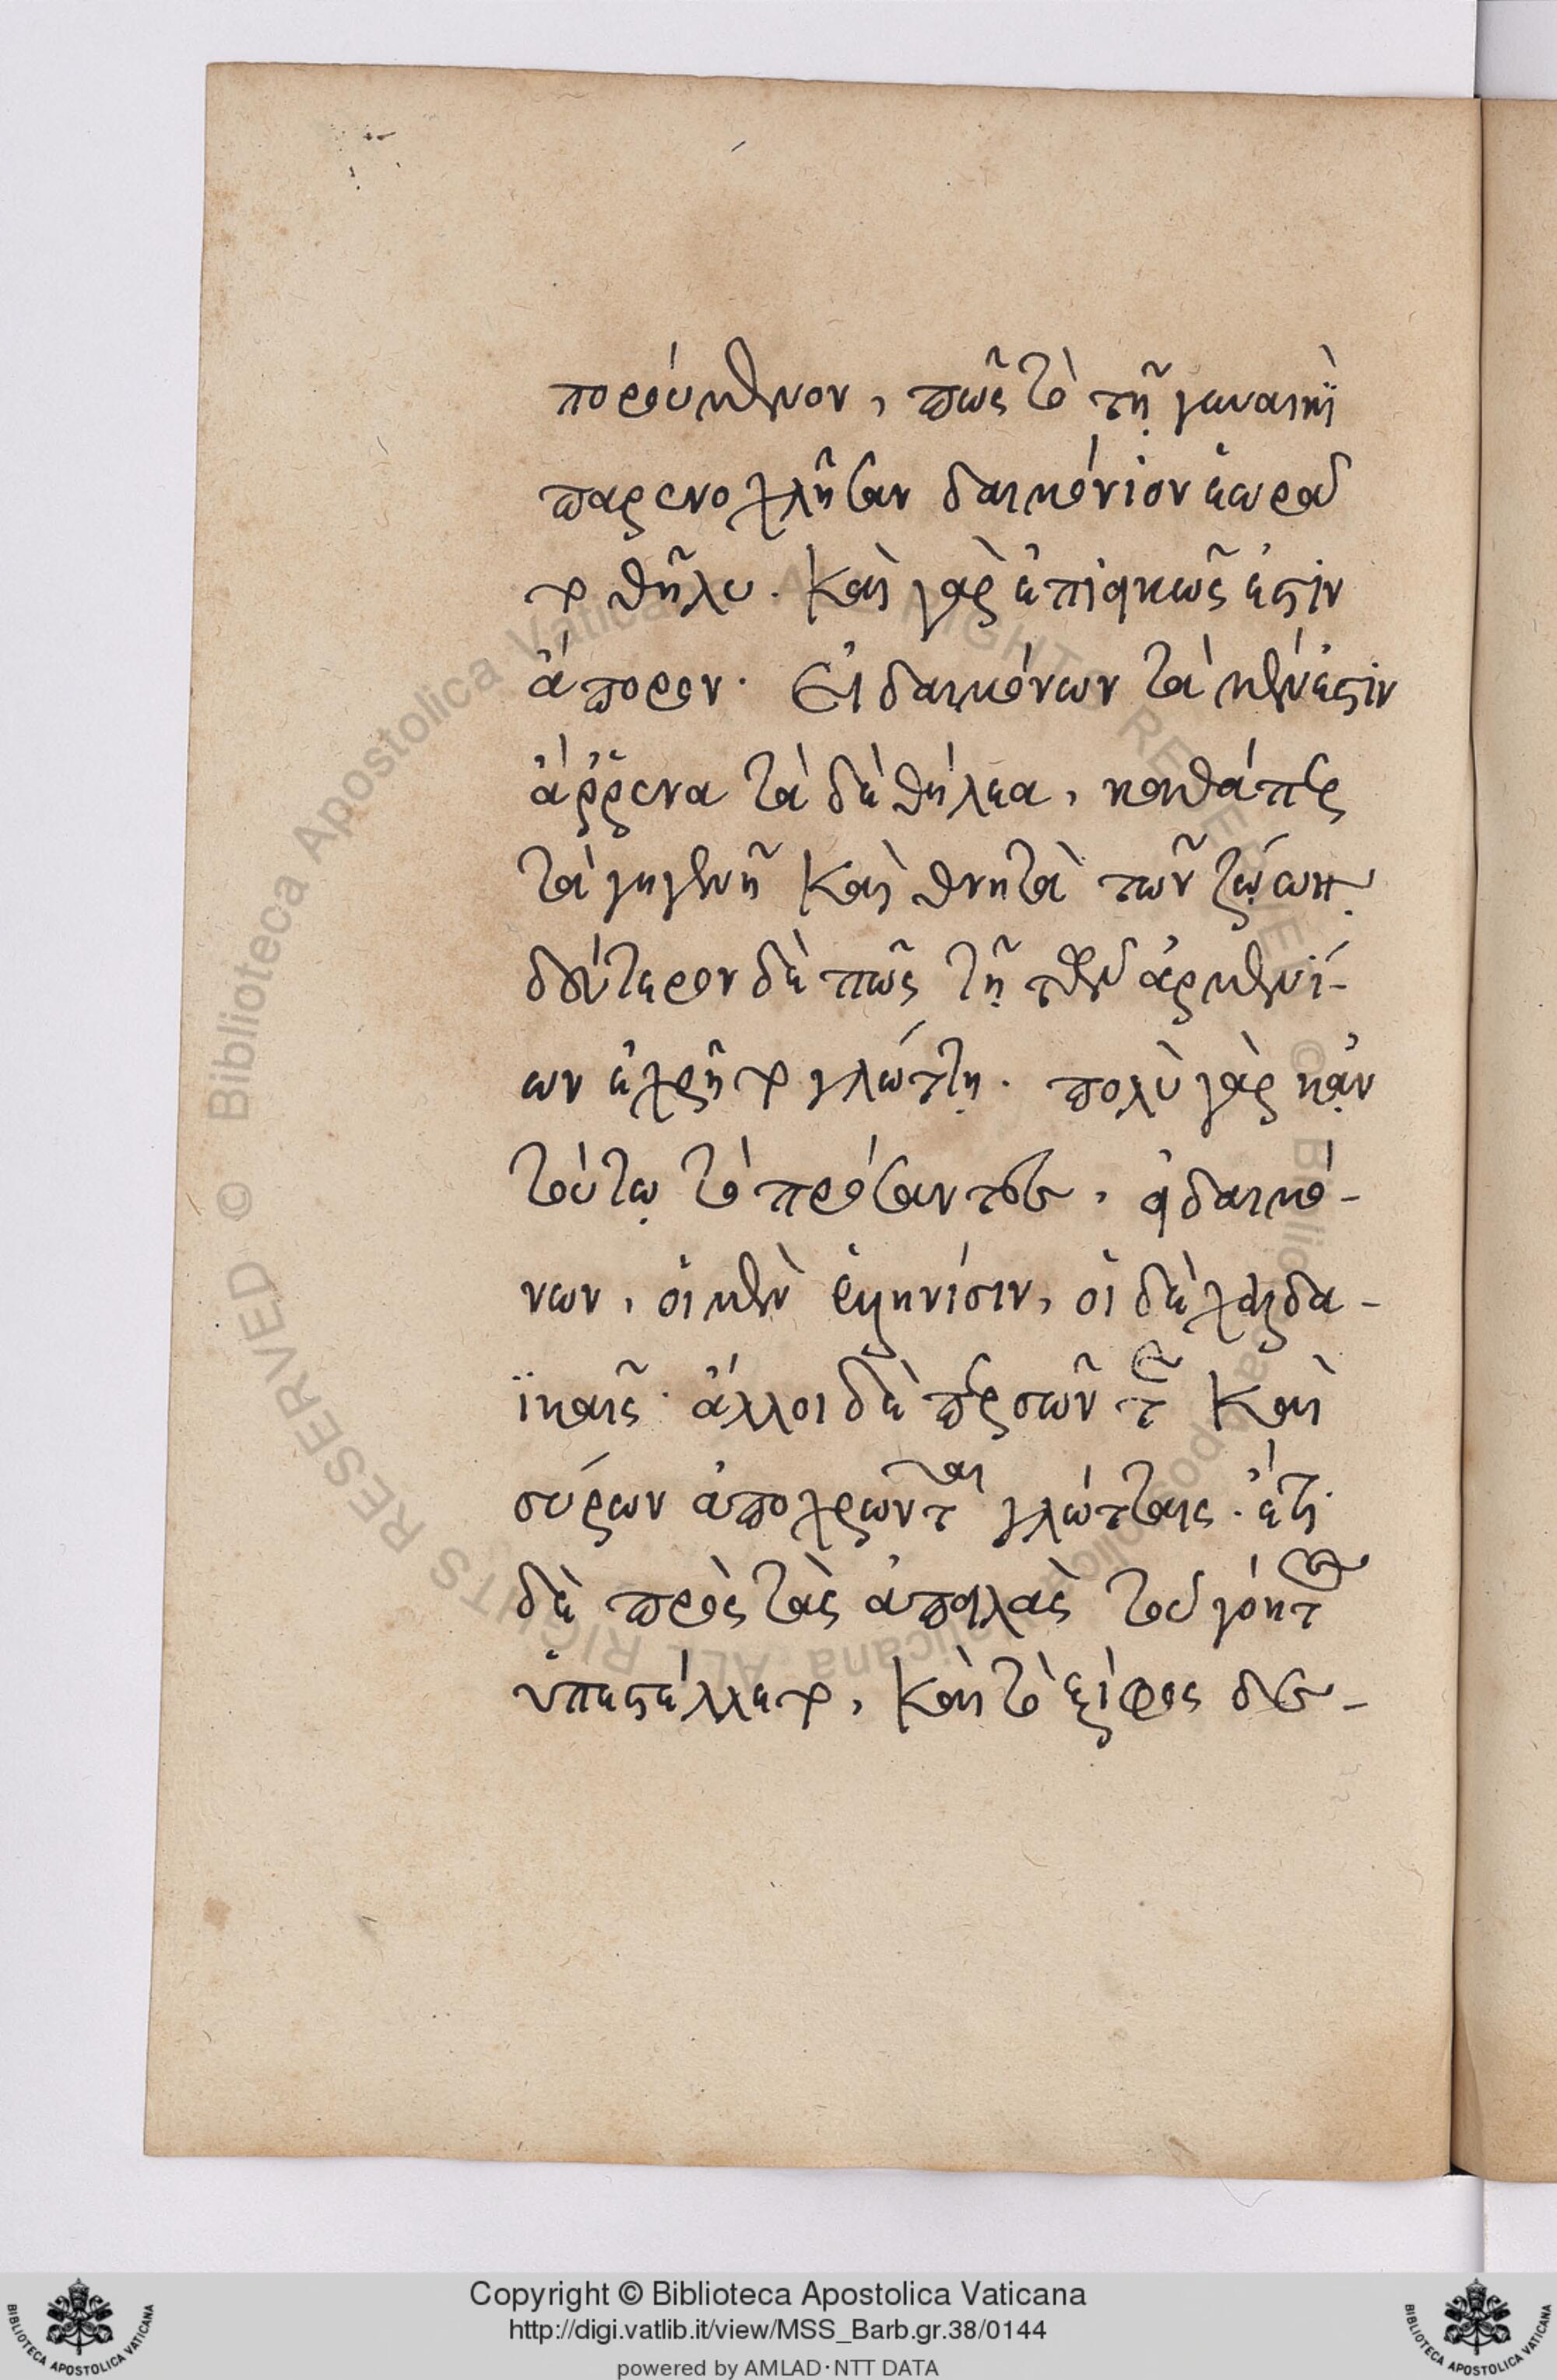 πορούμενον, πῶς τὸ τῇ γυναικὶ
παρενοχλῆσαν δαιμόνιον ἑωρᾶ
το θῆλυ. Καὶ γὰρ ἐπιεικῶς ἐστὶν
ἄπορον. Εἰ δαιμόνων τὰ μέν ἐστιν
ἄῤῥενα τὰ δὲ θήλεα, καθάπερ
τὰ γηγενῆ καὶ θνητὰ τῶν ζώων.
δεύτερον δὲ πῶς τῇ τῶν ἀρμενί-
ων ἐχρῆτο γλώττῃ. πολὺ γὰρ κἂν
τούτω τὸ πρόσαντες, εἰ δαιμό-
νων, οἱ μὲν ἑλληνίσιν, οἱ δὲ χαλδα-
ϊκαῖς. ἄλλοι δὲ περσῶν τε Καὶ
σύρων ἀποχρῶνται γλώτταις. ἔτι
δὲ πρὸς τὰς ἀπειλὰς τοῦ γόητος
ὑπεστέλλετο, Καὶ τὸ ξίφος ἐδε-
Copyright © Biblioteca Apostolica Vaticana
http://digi.vatlib.it/view/MSS_Barb.gr.38/0144
powered by AMLAD·NTT DATA